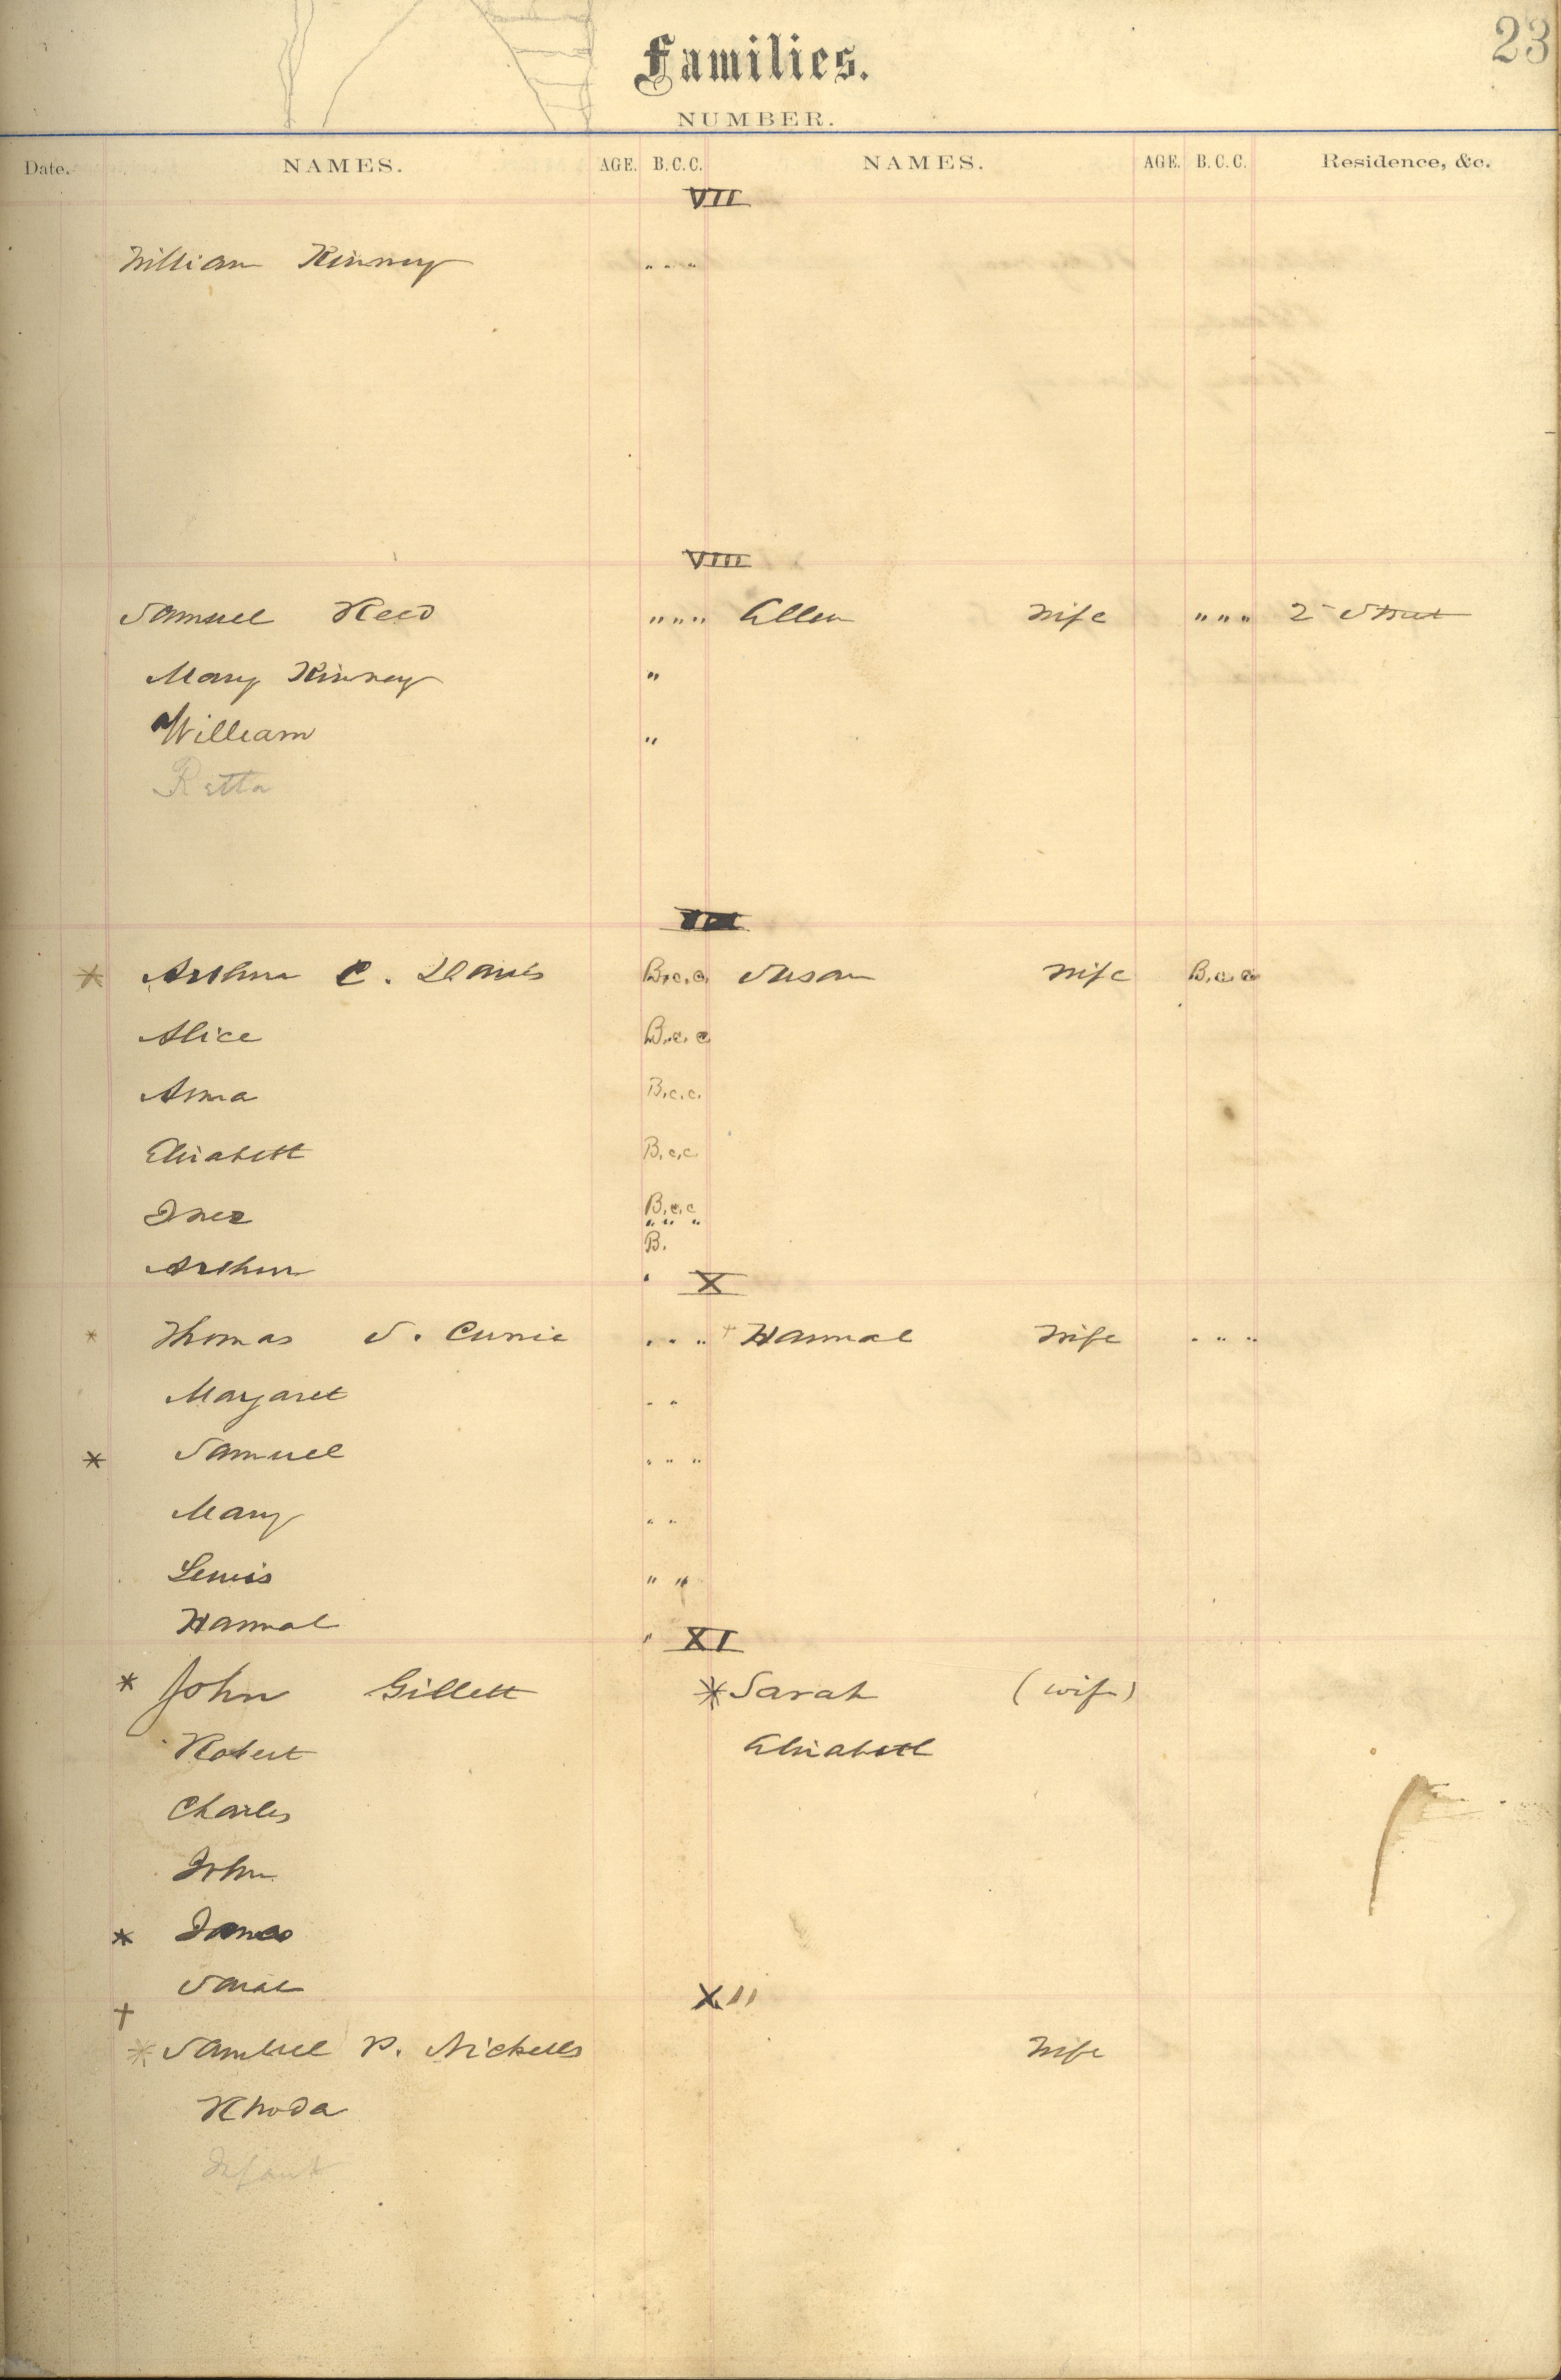 23
Families.
NUMBER.
Date. NAMES. AGE. B.C.C. NAMES. AGE. B.C.C. Residence, &c.
VII
William Kinney " " "
VIII
Samuel Reed " " " " Ellen Wife " " " 2 Street
Mary Kinney "
William "
Retta
* Arthur C. Davis B.c.c. Susan Wife B.c.c
Alice B.c.c
Anna B.c.c.
Elizabeth B.c.c.
Inez B.c.c
" " "
B.
Arthur "
X
* Thomas S. Currie " " " + Hannah Wife " " "
Margaret " "
* Samuel " " "
Mary " "
Lewis " "
Hannah "
XI
* John Gillett * Sarah (wife)
Robert Elizabeth
Charles
John
* James
Sarah
XII
+
* Samuel P. Nickells Wife
Rhoda
Infant